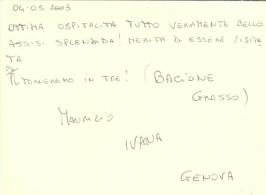 04.05 2003
OTTIMA OSPITALITÀ TUTTO VERAMENTE BELLO
ASSISI SPLENDIDA! MERITA DI ESSERE VISITA
TA
RITORNEREMO IN TRE! (BACIONE
GROSSO)
MAURIZIO
IVANA
GENOVA